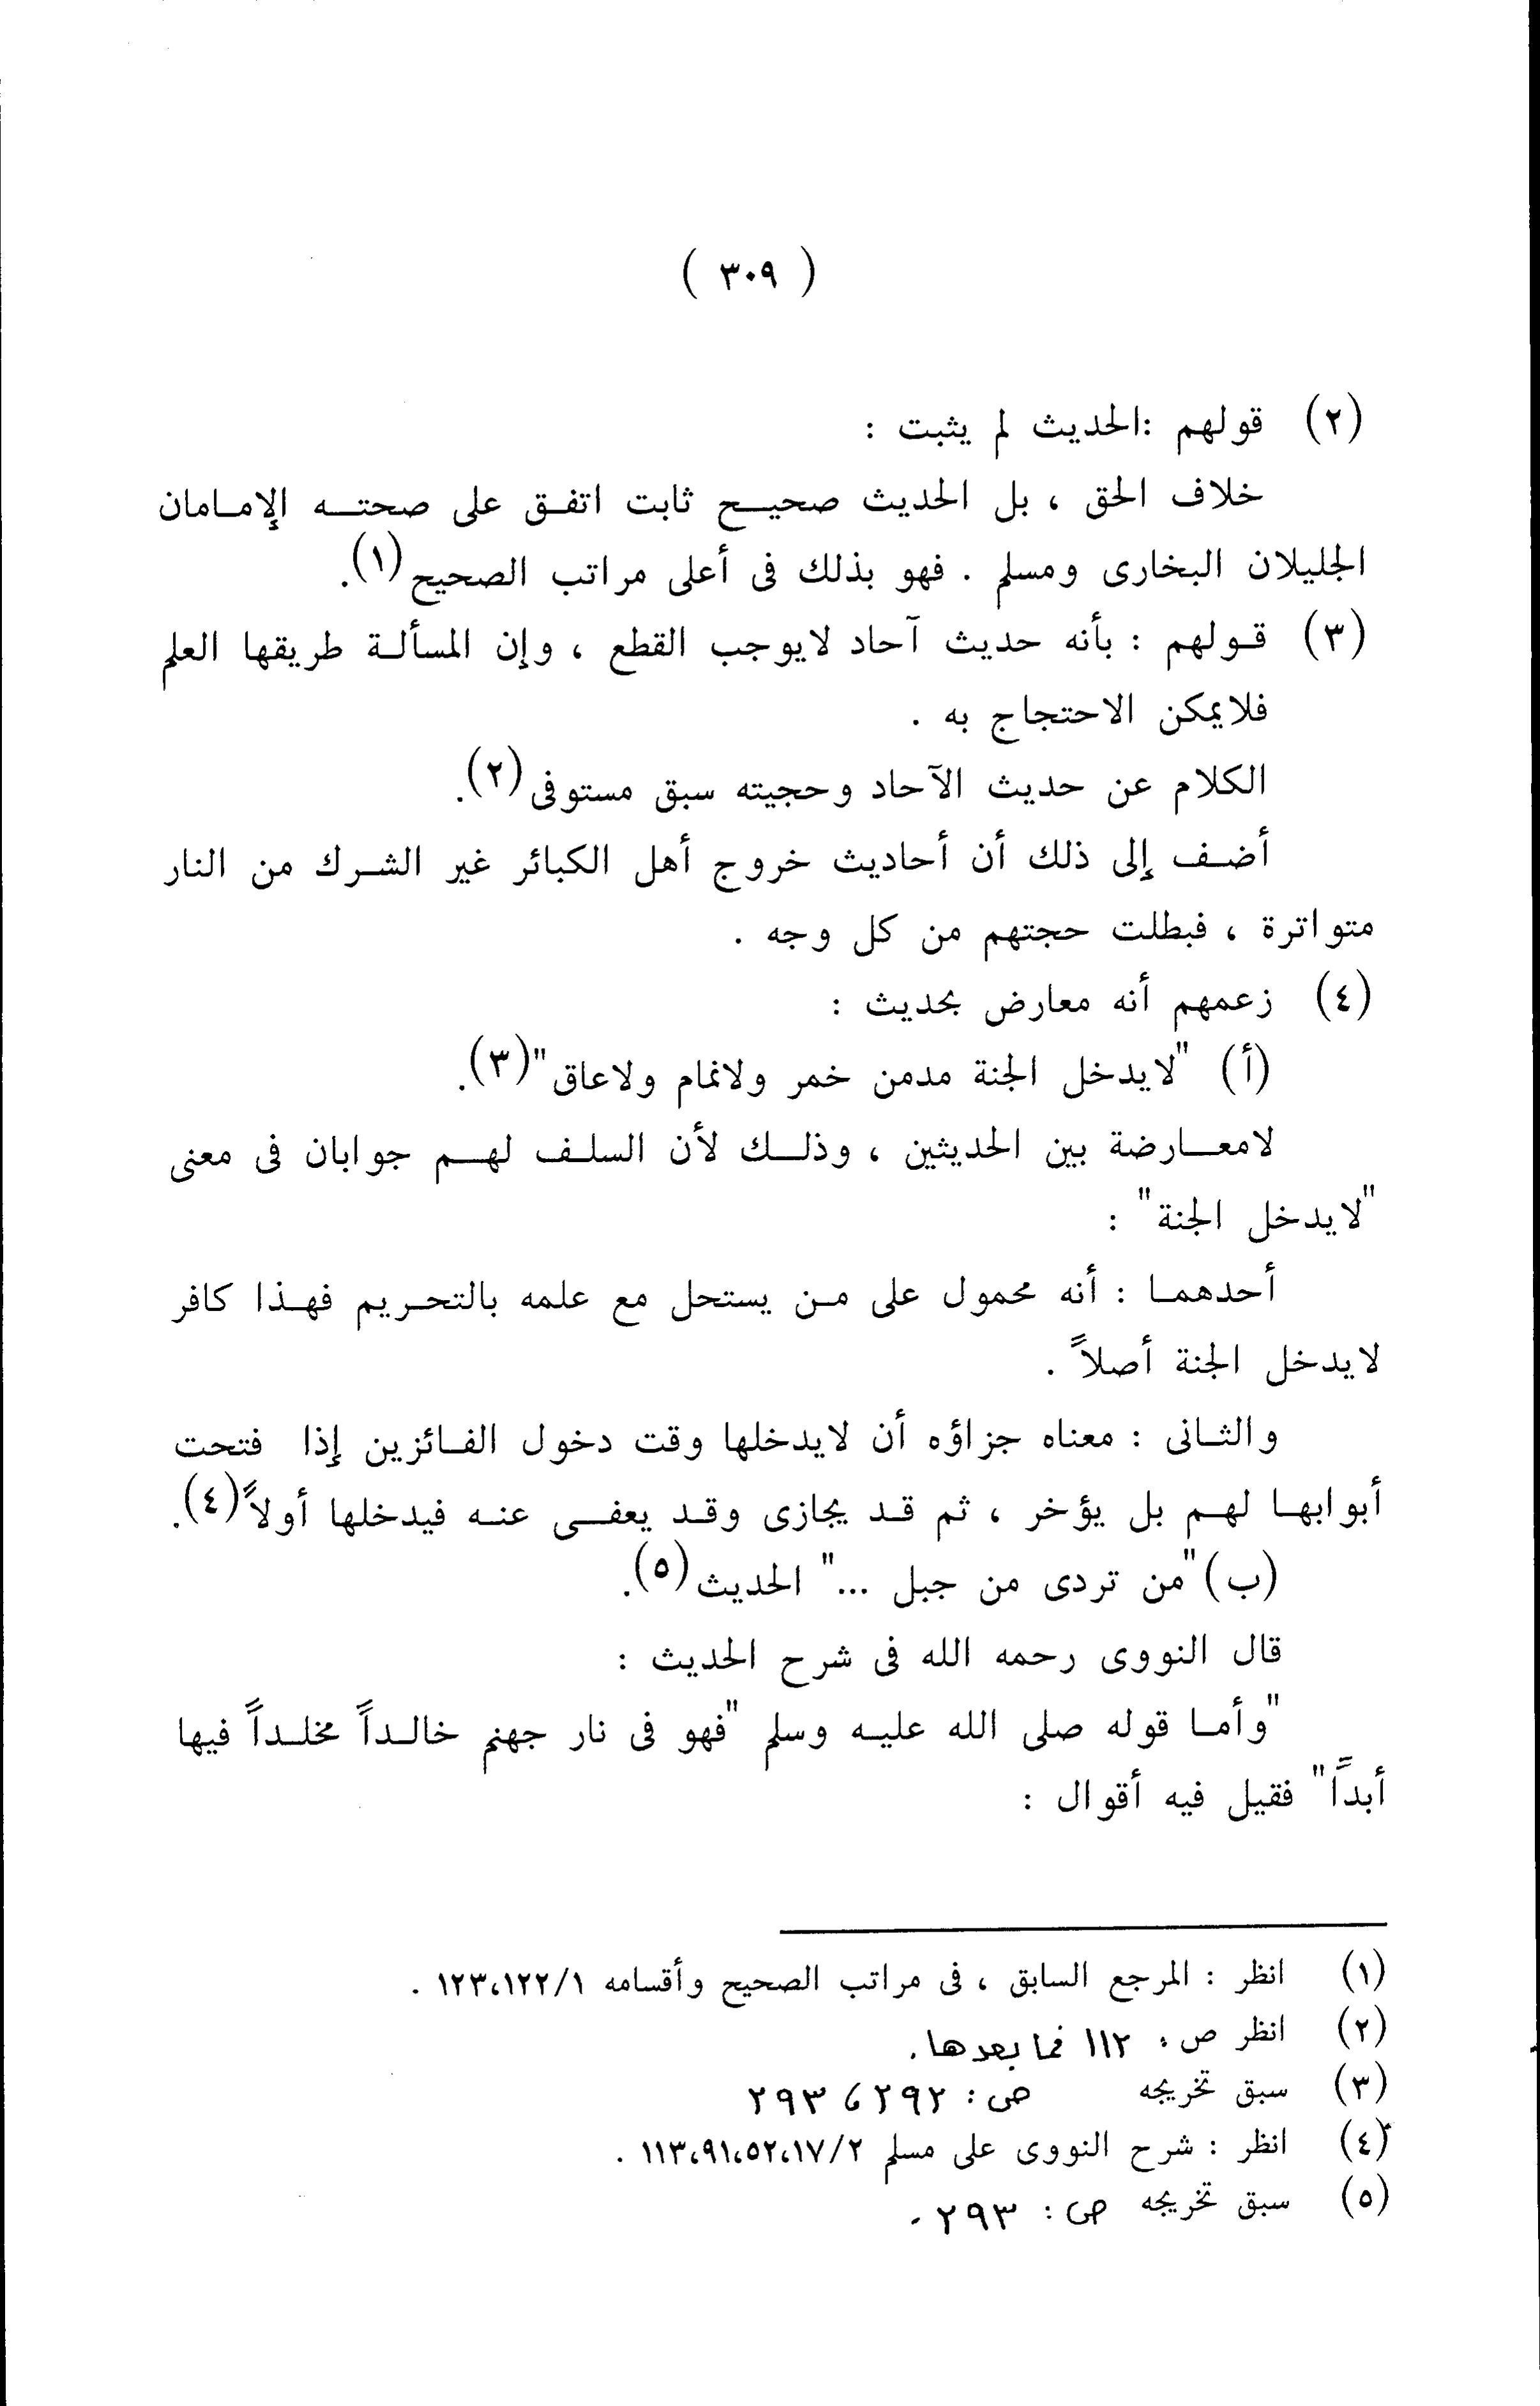 ( ٣٠٩ )
(٢) قولهم :الحديث لم يثبت :
خلاف الحق ، بل الحديث صحيح ثابت اتفق على صحته الإمامان
الجليلان البخارى ومسلم . فهو بذلك فى أعلى مراتب الصحيح(١).
(٣) قولهم : بأنه حديث آحاد لايوجب القطع ، وإن المسألة طريقها العلم
فلايمكن الاحتجاج به .
الكلام عن حديث الآحاد وحجيته سبق مستوفى(٢).
أضف إلى ذلك أن أحاديث خروج أهل الكبائر غير الشرك من النار
متواترة ، فبطلت حجتهم من كل وجه .
(٤) زعمهم أنه معارض بحديث :
(أ) "لايدخل الجنة مدمن خمر ولانمام ولاعاق"(٣).
لامعارضة بين الحديثين ، وذلك لأن السلف لهم جوابان فى معنى
"لايدخل الجنة" :
أحدهما : أنه محمول على من يستحل مع علمه بالتحريم فهذا كافر
لايدخل الجنة أصلاً .
والثانى : معناه جزاؤه أن لايدخلها وقت دخول الفائزين إذا فتحت
أبوابها لهم بل يؤخر ، ثم قد يجازى وقد يعفى عنه فيدخلها أولاً(٤).
(ب) "من تردى من جبل ..." الحديث(٥).
قال النووى رحمه الله فى شرح الحديث :
"وأما قوله صلى الله عليه وسلم "فهو فى نار جهنم خالداً مخلداً فيها
أبداً" فقيل فيه أقوال :
(١) انظر : المرجع السابق ، فى مراتب الصحيح وأقسامه ١٢٣،١٢٢/١ .
(٢) انظر ص: ١١٢ فما بعدها.
(٣) سبق تخريجه ص: ٢٩٢ ، ٢٩٣
(٤) انظر : شرح النووى على مسلم ١١٣،٩١،٥٢،١٧/٢ .
(٥) سبق تخريجه ص: ٢٩٣ .